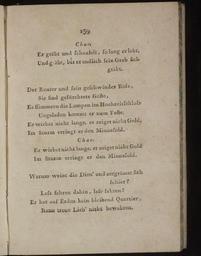 159
Chor.
Er geißt und schaufelt, so lang er lebt,
Und gräbt, bis er endlich sein Grab sich
gräbt.
Der Reuter und sein geschwinder Roß,
Sie sind gefürchtete Gäste,
Es flimmern die Lampen im Hochzeitschloß
Ungeladen kommt er zum Feste.
Er wirbet nicht lange, er zeiget nicht Gold,
Im Sturm erringt er den Minnesold.
Chor.
Er wirbet nicht lange, er zeiget nicht Gold
Im Sturm erringt er den Minnesold.
Warum weint die Dirn' und zergrämet sich
schier?
Laß fahren dahin, laß fahren!
Er hat auf Erden kein bleibend Quartier,
Kann treue Lieb' nicht bewahren.